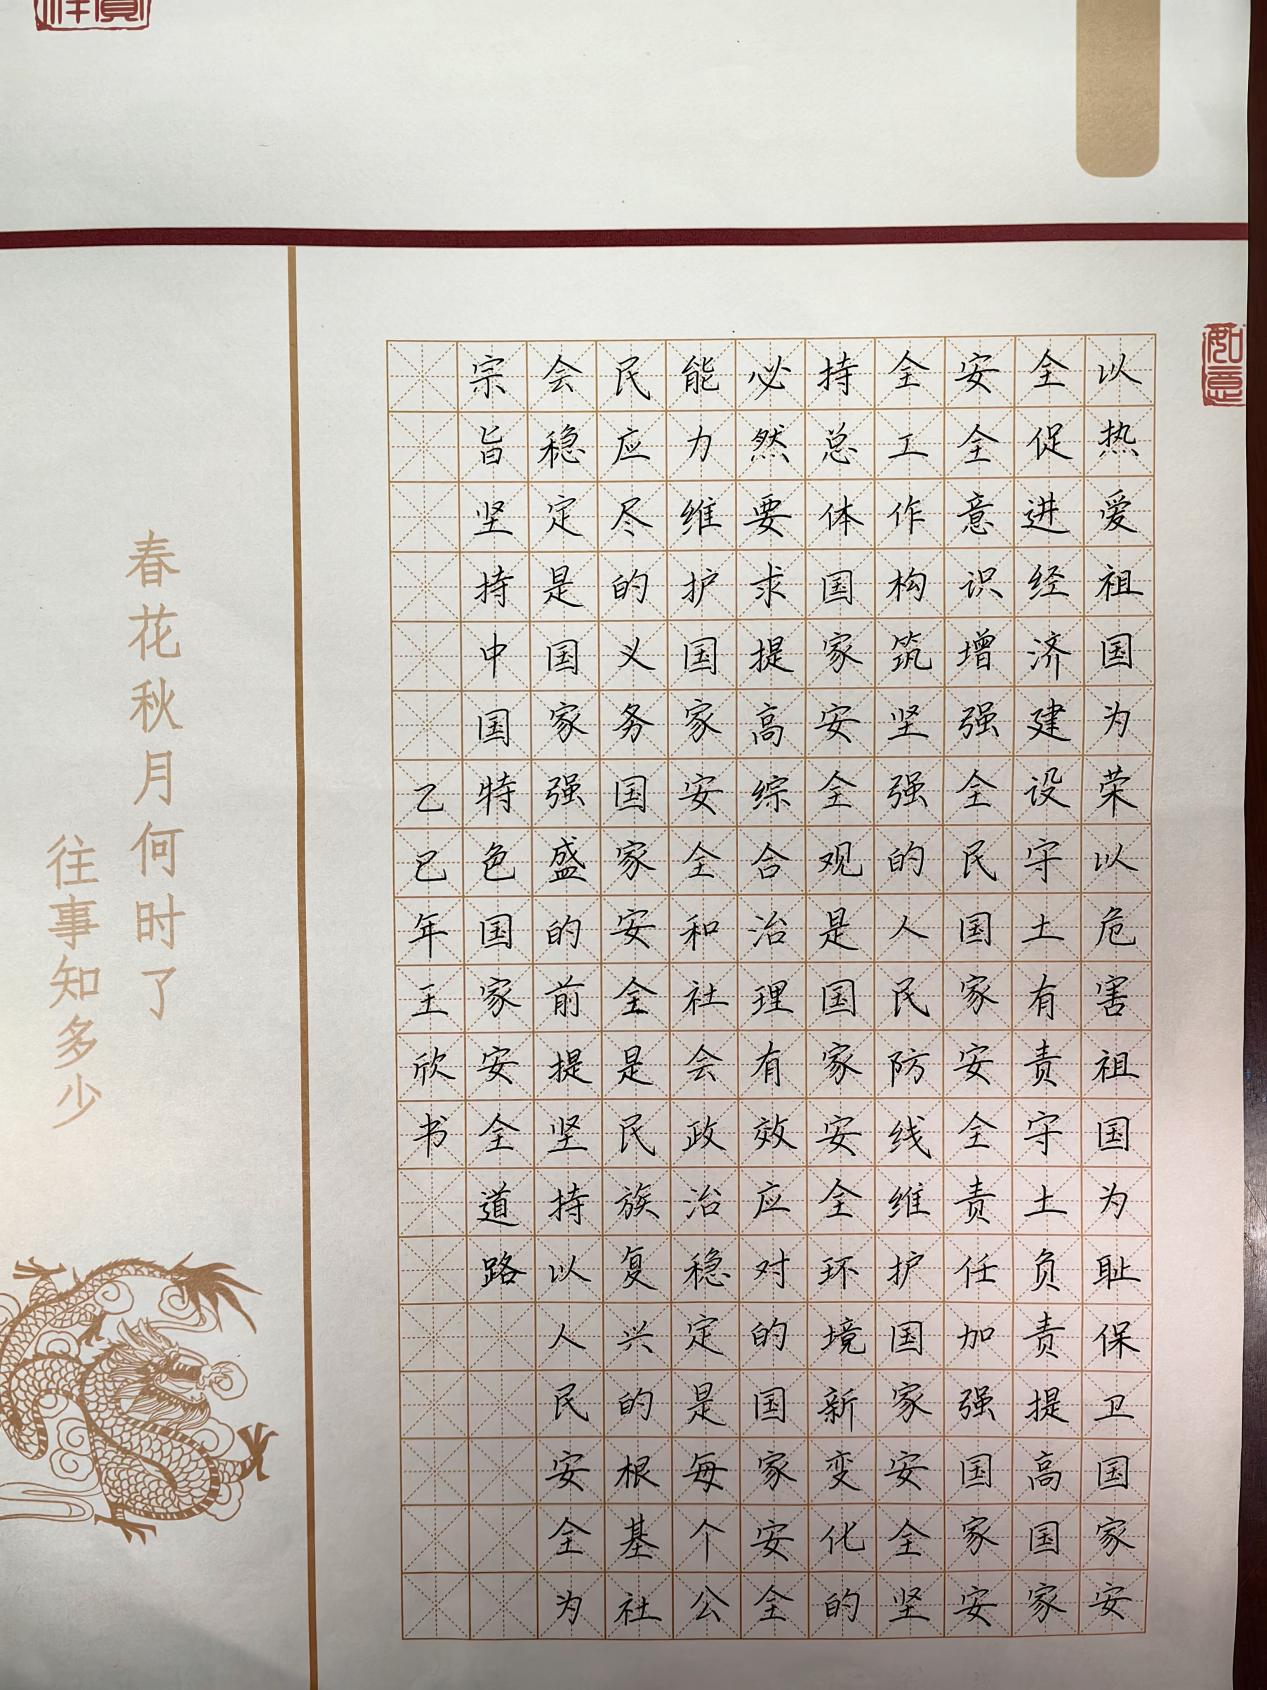 以热爱祖国为荣以危害祖国为耻保卫国家安
全促进经济建设守土有责守土负责提高国家
安全意识增强全民国家安全责任加强国家安
全工作构筑坚强的人民防线维护国家安全坚
持总体国家安全观是国家安全环境新变化的
必然要求提高综合治理有效应对的国家安全
能力维护国家安全和社会政治稳定是每个公
民应尽的义务国家安全是民族复兴的根基社
会稳定是国家强盛的前提坚持以人民安全为
宗旨坚持中国特色国家安全道路
乙巳年王欣书
春花秋月何时了
往事知多少
如意